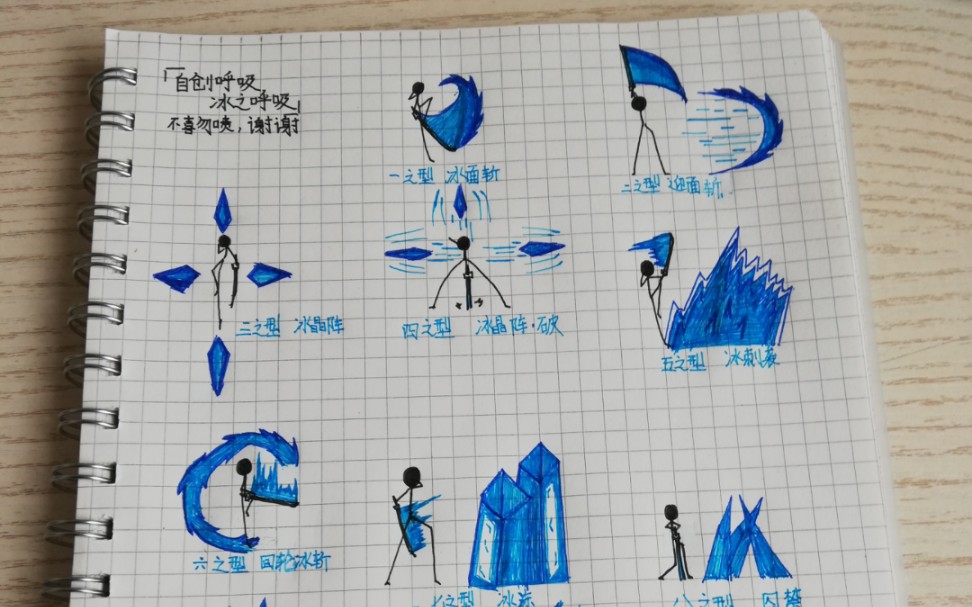 「自创呼吸
冰之呼吸」
不喜勿喷,谢谢
一之型 冰面斩
二之型 迎面斩
三之型 冰晶阵
四之型 冰晶阵·破
五之型 冰刺
六之型 回轮冰斩
七之型 冰
八之型 囚